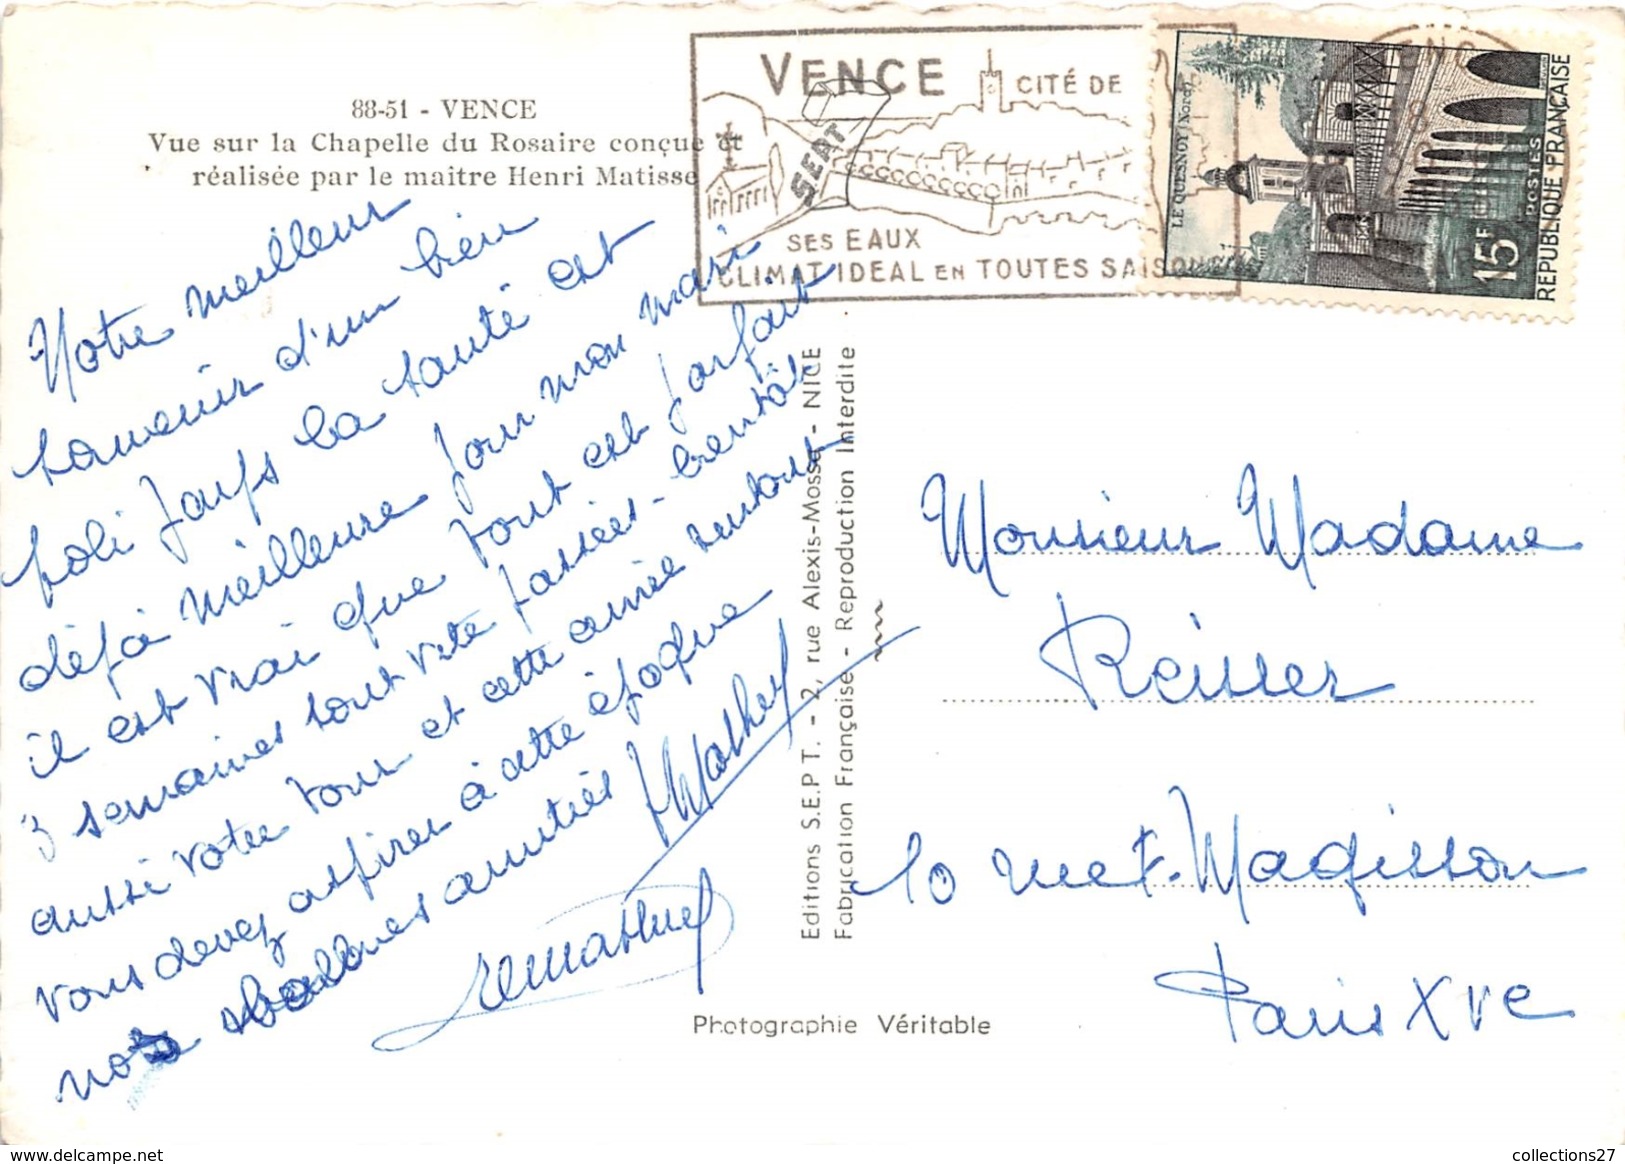 88-51 - VENCE
Vue sur la Chapelle du Rosaire conçue et
réalisée par le maître Henri Matisse
VENCE
CITÉ DE
SEAT
SES EAUX
CLIMAT IDEAL EN TOUTES SAISONS
LE QUESNOY (Nord)
15F
POSTES
REPUBLIQUE FRANÇAISE
Notre meilleur
souvenir d'un bien
joli pays la santé est
déjà meilleure pour mon mari
il est vrai que tout est parfait
3 semaines sont vite passées - bientôt
aussi votre tour et cette année surtout
vous devez aspirer à cette époque
nos bonnes amitiés Mathey
Editions S.E.P.T. - 2, rue Alexis-Mossa - NICE
Fabrication Française - Reproduction Interdite
Monsieur Madame
Reisser
10 rue F. Magisson
Paris XVe
Photographie Véritable
delcampe.net
collections27